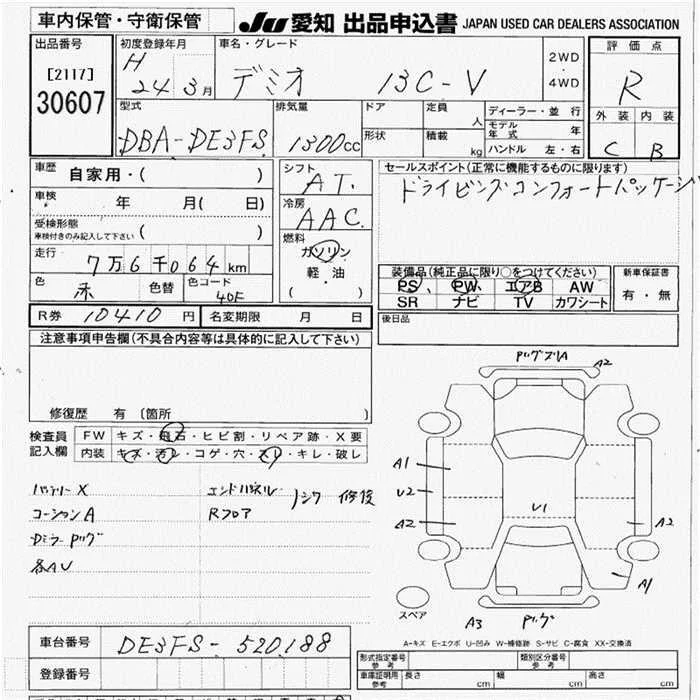 車内保管・守衛保管
JU 愛知 出品申込書 JAPAN USED CAR DEALERS ASSOCIATION
出品番号
[2117]
30607
初度登録年月
H
24 3月
車名・グレード
デミオ 13C-V
2WD
・
4WD
評価点
R
外装 内装
C B
型式
DBA-DE3FS
排気量
1300cc
ドア
形状
定員
人
積載
kg
ディーラー・並行
モデル年式 年
ハンドル 左・右
車歴
自家用・( )
車検
年 月( 日)
受検形態
車検付きのみ記入して下さい ( )
走行
7万6千064km
色
赤
色替
色コード
40F
シフト
AT.
冷房
AAC.
燃料
ガソリン
軽・油
( )
セールスポイント(正常に機能するものに限ります)
ドライビングコンフォートパッケージ
装備品(純正品に限り○をつけてください)
PS PW エアB AW
SR ナビ TV カワシート
新車保証書
有・無
R券 10410円
名変期限 月 日
後日品
注意事項申告欄(不具合内容等は具体的に記入して下さい)
修復歴 有〔箇所 〕
検査員
記入欄
FW キズ・飛石・ヒビ割・リペア跡・X要
内装 キズ・汚レ・コゲ・穴・スレ・キレ・破レ
バッテリーX
コーションA
Dミラー Pツグ
各AU
エンドパネル
Rフロア
シワ 修復
PツブレA
A2
A1
U2
A2
U1
A2
A1
スペア
A3
Pツグ
A-キズ E-エクボ U-凹み W-補修跡 S-サビ C-腐食 XX-交換済
車台番号 DE3FS-520188
登録番号
形式指定番号
参考
類別区分番号
参考
車庫証明用
参考
長さ cm
幅 cm
高さ cm